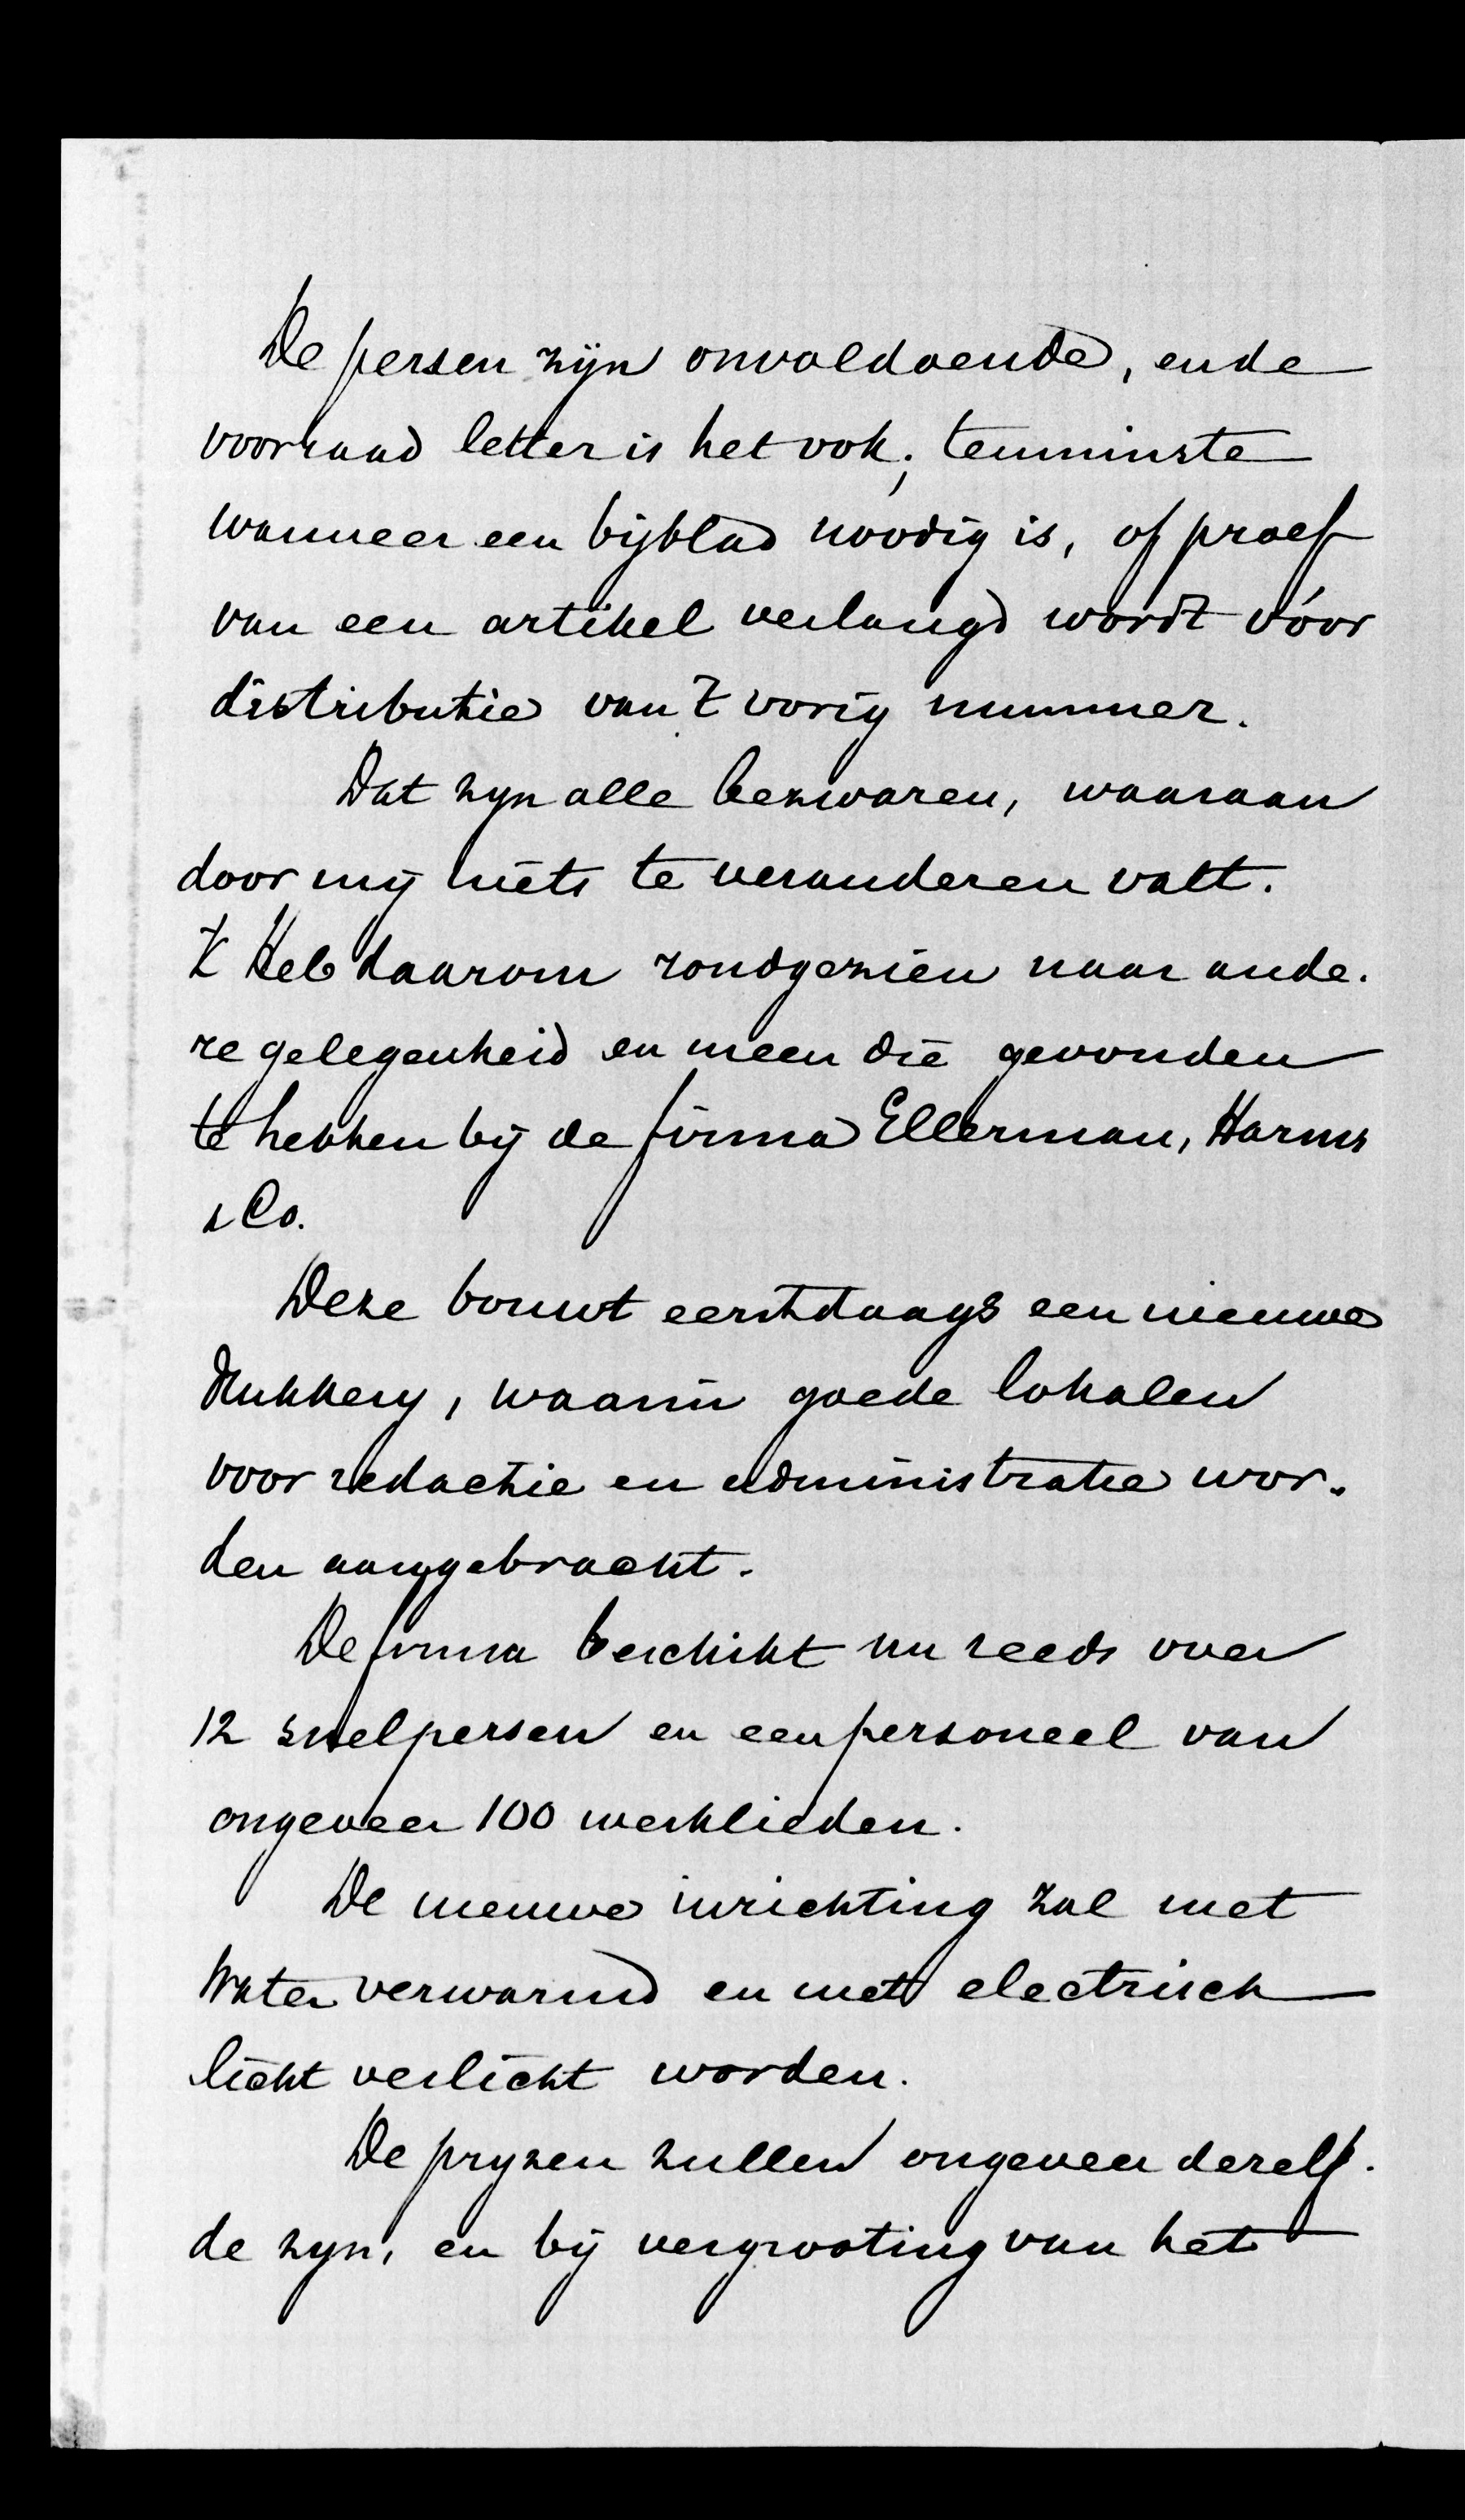 De persen zijn onvoldoende, en de
voorraad letter is het ook; tenminste
wanneer een bijblad noodig is, of proef
van een artikel verlangd wordt vóor
distributie van 't vorig nummer.
Dat zyn alle bezwaren, waaraan
door mij niets te veranderen valt.
'k Heb daarom rondgezien naar ande-
re gelegenheid en meen die gevonden
te hebben bij de firma Ellerman, Harms
& Co.
Deze bouwt eerstdaags een nieuwe
drukkery, waarin goede lokalen
voor redactie en administratie wor-
den aangebracht.
De firma beschikt nu reeds over
12 snelpersen en een personeel van
ongeveer 100 werklieden.
De nieuwe inrichting zal met
water verwarmd en met electrisch
licht verlicht worden.
De pryzen zullen ongeveer derelf-
de zyn, en bij vergrooting van het